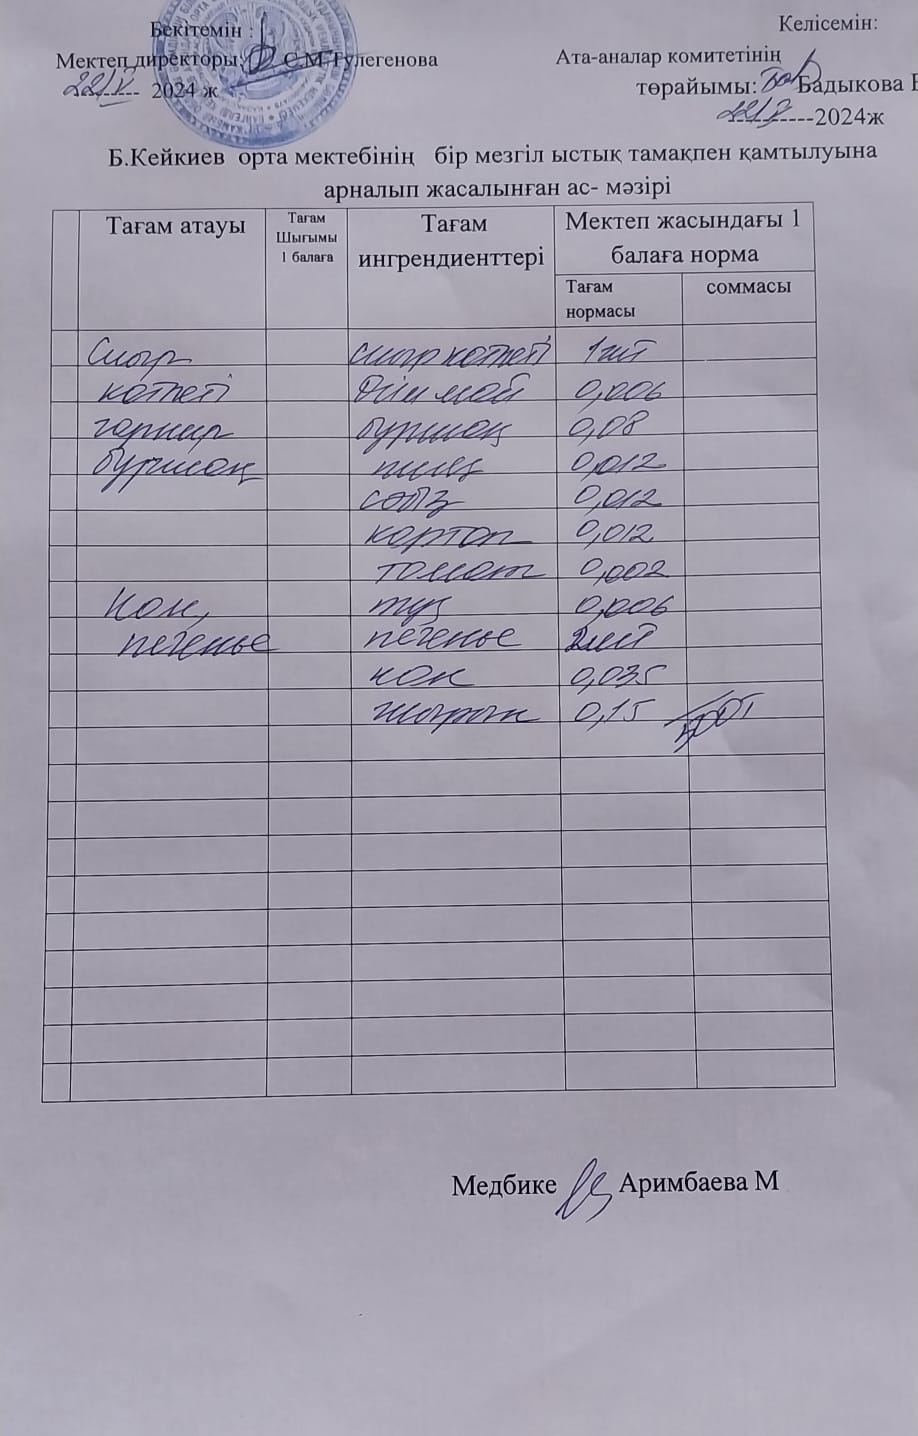 Бекітемін :
Келісемін:
Мектеп директоры: С.М.Тулегенова
Ата-аналар комитетінің
22/V 2024 ж
төрайымы: Бадыкова Е
22/V ----------2024ж
Б.Кейкиев орта мектебінің бір мезгіл ыстық тамақпен қамтылуына
арналып жасалынған ас- мәзірі
Тағам атауы
Тағам Шығымы 1 балаға
Тағам ингрендиенттері
Мектеп жасындағы 1 балаға норма
Тағам нормасы
соммасы
Сиыр сиыр котлеті 1шт
котлеті Өсім май 0,006
гарнир бұршақ 0,08
бұршақ пияз 0,012
сәбіз 0,012
картоп 0,012
томат 0,002
Нан, тұз 0,006
печенье печенье 2шт
нан 0,035
шырын 0,15
Медбике Аримбаева М